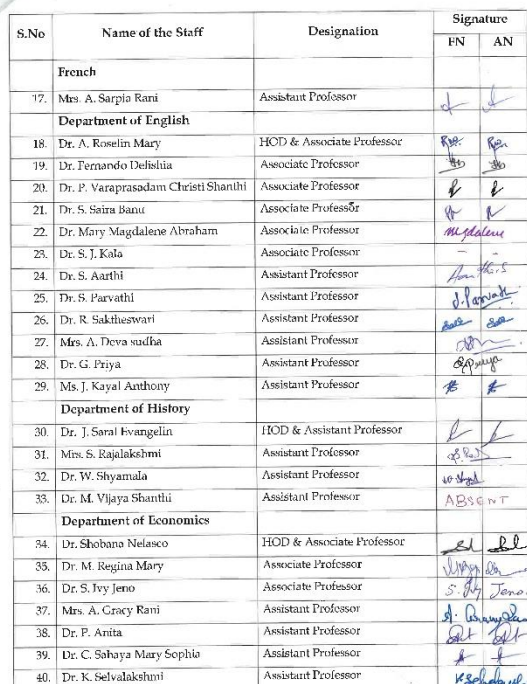 S.No Name of the Staff Designation Signature
FN AN
French
17. Mrs. A. Sarpia Rani Assistant Professor
Department of English
18. Dr. A. Roselin Mary HOD & Associate Professor
19. Dr. Fernando Delishia Associate Professor
20. Dr. P. Varaprasadam Christi Shanthi Associate Professor
21. Dr. S. Saira Banu Associate Professor
22. Dr. Mary Magdalene Abraham Associate Professor Magdalene
23. Dr. S. J. Kala Associate Professor - -
24. Dr. S. Aarthi Assistant Professor
25. Dr. S. Parvathi Assistant Professor S. Parvath
26. Dr. R. Saktheswari Assistant Professor
27. Mrs. A. Deva sudha Assistant Professor
28. Dr. G. Priya Assistant Professor G. Priya
29. Ms. J. Kayal Anthony Assistant Professor
Department of History
30. Dr. J. Saral Evangelin HOD & Assistant Professor
31. Mrs. S. Rajalakshmi Assistant Professor
32. Dr. W. Shyamala Assistant Professor
33. Dr. M. Vijaya Shanthi Assistant Professor ABSENT
Department of Economics
34. Dr. Shobana Nelasco HOD & Associate Professor
35. Dr. M. Regina Mary Associate Professor
36. Dr. S. Ivy Jeno Associate Professor S. Ivy Jeno
37. Mrs. A. Gracy Rani Assistant Professor
38. Dr. P. Anita Assistant Professor
39. Dr. C. Sahaya Mary Sophia Assistant Professor
40. Dr. K. Selvalakshmi Assistant Professor